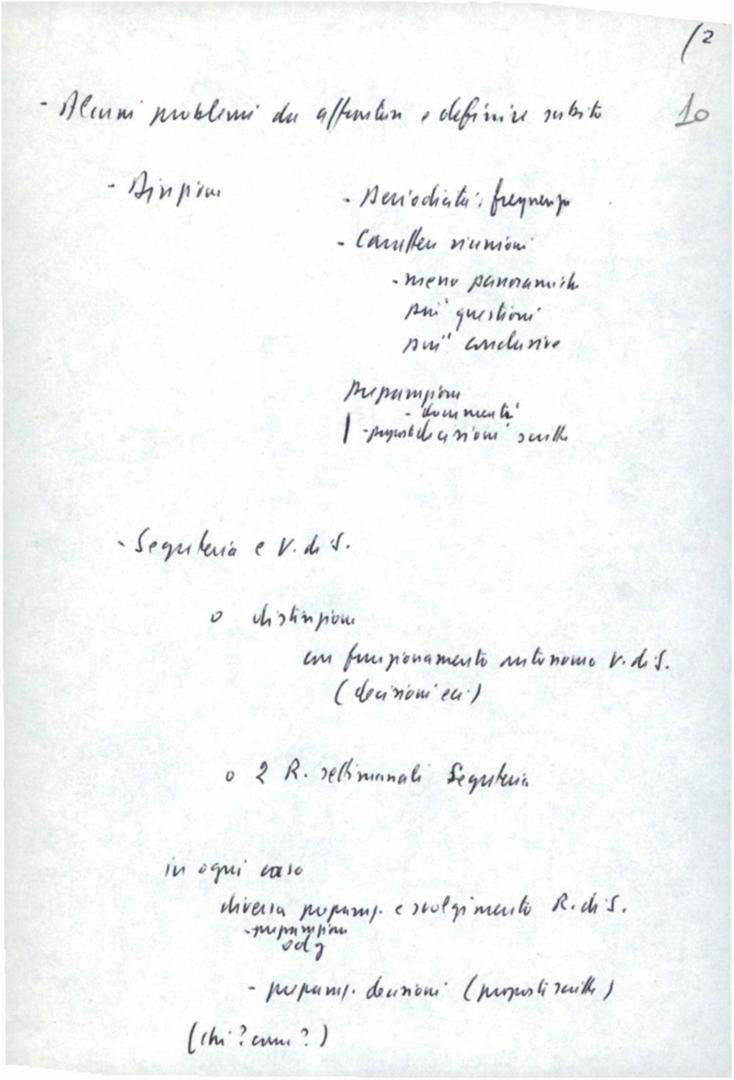 (2
10
- Alcuni problemi da affrontare e definire subito
- Direzione
- Periodicità; frequenza
- Carattere riunioni
- meno panoramiche
più questioni
più conclusive
Preparazione
- documenti
- proposte decisioni scritte
- Segreteria e V. di S.
o distinzione
con funzionamento autonomo V. di S.
(decisioni ecc.)
o 2 R. settimanali Segreteria
in ogni caso
diversa preparaz. e svolgimento R. di S.
- preparazione
odg
- preparaz. decisioni (proposte scritte)
(chi? come?)